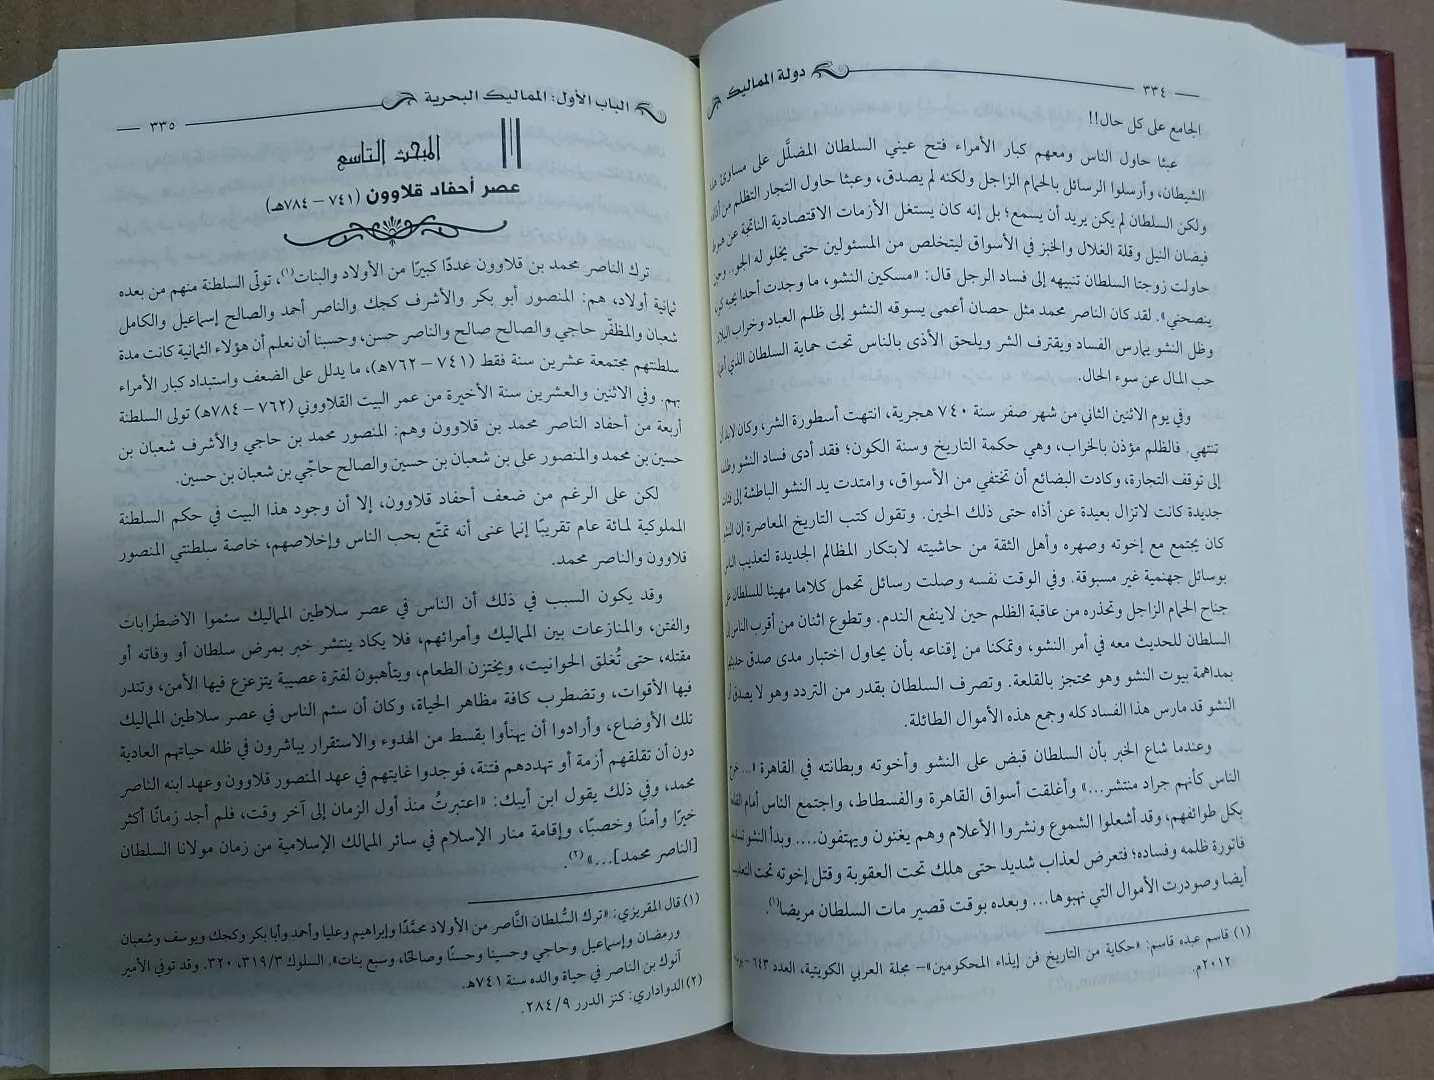 ٣٣٤ دولة المماليك
الجامع على كل حال!!
عبثا حاول الناس ومعهم كبار الأمراء فتح عيني السلطان المضلَّل على مساوئ
الشيطان، وأرسلوا الرسائل بالحمام الزاجل ولكنه لم يصدق، وعبثا حاول التجار التظلم من
ولكن السلطان لم يكن يريد أن يسمع؛ بل إنه كان يستغل الأزمات الاقتصادية الناتجة عن
فيضان النيل وقلة الغلال والخبز في الأسواق ليتخلص من المسئولين حتى يخلو له الجو..
حاولت زوجتا السلطان تنبيهه إلى فساد الرجل قال: «مسكين النشو، ما وجدت أحدا يحبه
ينصحني». لقد كان الناصر محمد مثل حصان أعمى يسوقه النشو إلى ظلم العباد وخراب البلاد
وظل النشو يمارس الفساد ويقترف الشر ويلحق الأذى بالناس تحت حماية السلطان الذي
حب المال عن سوء الحال.
وفي يوم الاثنين الثاني من شهر صفر سنة ٧٤٠ هجرية، انتهت أسطورة الشر، وكان لابد أن
تنتهي. فالظلم مؤذن بالخراب، وهي حكمة التاريخ وسنة الكون؛ فقد أدى فساد النشو
إلى توقف التجارة، وكادت البضائع أن تختفي من الأسواق، وامتدت يد النشو الباطشة إلى
جديدة كانت لاتزال بعيدة عن أذاه حتى ذلك الحين. وتقول كتب التاريخ المعاصرة إن
كان يجتمع مع إخوته وصهره وأهل الثقة من حاشيته لابتكار المظالم الجديدة لتعذيب
بوسائل جهنمية غير مسبوقة. وفي الوقت نفسه وصلت رسائل تحمل كلاما مهينا للسلطان
جناح الحمام الزاجل وتحذره من عاقبة الظلم حين لاينفع الندم. وتطوع اثنان من أقرب الناس
السلطان للحديث معه في أمر النشو، وتمكنا من إقناعه بأن يحاول اختبار مدى صدق
بمداهمة بيوت النشو وهو محتجز بالقلعة. وتصرف السلطان بقدر من التردد وهو لا يصدق
النشو قد مارس هذا الفساد كله وجمع هذه الأموال الطائلة.
وعندما شاع الخبر بأن السلطان قبض على النشو وأخوته وبطانته في القاهرة «...
الناس كأنهم جراد منتشر...» وأغلقت أسواق القاهرة والفسطاط، واجتمع الناس أمام
بكل طوائفهم، وقد أشعلوا الشموع ونشروا الأعلام وهم يغنون ويهتفون.... وبدأ النشو
فاتورة ظلمه وفساده؛ فتعرض لعذاب شديد حتى هلك تحت العقوبة وقتل إخوته تحت
أيضا وصودرت الأموال التي نهبوها... وبعده بوقت قصير مات السلطان مريضا(١).
(١) قاسم عبده قاسم: «حكاية من التاريخ فن إيذاء المحكومين»- مجلة العربي الكويتية، العدد ٦٤٣ -
٢٠١٢م.
الباب الأول: المماليك البحرية ٣٣٥
المبحث التاسع
عصر أحفاد قلاوون (٧٤١ – ٧٨٤هـ)
ترك الناصر محمد بن قلاوون عددًا كبيرًا من الأولاد والبنات(١)، تولّى السلطنة منهم من بعده
ثمانية أولاد، هم: المنصور أبو بكر والأشرف كجك والناصر أحمد والصالح إسماعيل والكامل
شعبان والمظفّر حاجي والصالح صالح والناصر حسن، وحسبنا أن نعلم أن هؤلاء الثمانية كانت مدة
سلطنتهم مجتمعة عشرين سنة فقط (٧٤١ – ٧٦٢هـ)، ما يدلل على الضعف واستبداد كبار الأمراء
بهم. وفي الاثنين والعشرين سنة الأخيرة من عمر البيت القلاووني (٧٦٢ – ٧٨٤هـ) تولى السلطنة
أربعة من أحفاد الناصر محمد بن قلاوون وهم: المنصور محمد بن حاجي والأشرف شعبان بن
حسين بن محمد والمنصور على بن شعبان بن حسين والصالح حاجّي بن شعبان بن حسين.
لكن على الرغم من ضعف أحفاد قلاوون، إلا أن وجود هذا البيت في حكم السلطنة
المملوكية لمائة عام تقريبًا إنما عنى أنه تمتّع بحب الناس وإخلاصهم، خاصة سلطنتي المنصور
قلاوون والناصر محمد.
وقد يكون السبب في ذلك أن الناس في عصر سلاطين المماليك سئموا الاضطرابات
والفتن، والمنازعات بين المماليك وأمرائهم، فلا يكاد ينتشر خبر بمرض سلطان أو وفاته أو
مقتله، حتى تُغلق الحوانيت، ويختزن الطعام، ويتأهبون لفترة عصيبة يتزعزع فيها الأمن، وتندر
فيها الأقوات، وتضطرب كافة مظاهر الحياة، وكان أن سئم الناس في عصر سلاطين المماليك
تلك الأوضاع، وأرادوا أن يهنأوا بقسط من الهدوء والاستقرار يباشرون في ظله حياتهم العادية
دون أن تقلقهم أزمة أو تهددهم فتنة، فوجدوا غايتهم في عهد المنصور قلاوون وعهد ابنه الناصر
محمد، وفي ذلك يقول ابن أيبك: «اعتبرتُ منذ أول الزمان إلى آخر وقت، فلم أجد زمانًا أكثر
خيرًا وأمنًا وخصبًا، وإقامة منار الإسلام في سائر الممالك الإسلامية من زمان مولانا السلطان
[الناصر محمد]...» (٢).
(١) قال المقريزي: «ترك السُّلطان النَّاصر من الأولاد محمَّدًا وإبراهيم وعليا وأحمد وأبا بكر وكجك ويوسف وشعبان
ورمضان وإسماعيل وحاجي وحسينا وحسنًا وصالحًا، وسبع بنات». السلوك ٣١٩/٣، ٣٢٠. وقد توفي الأمير
آنوك بن الناصر في حياة والده سنة ٧٤١هـ.
(٢) الدواداري: كنز الدرر ٢٨٤/٩.